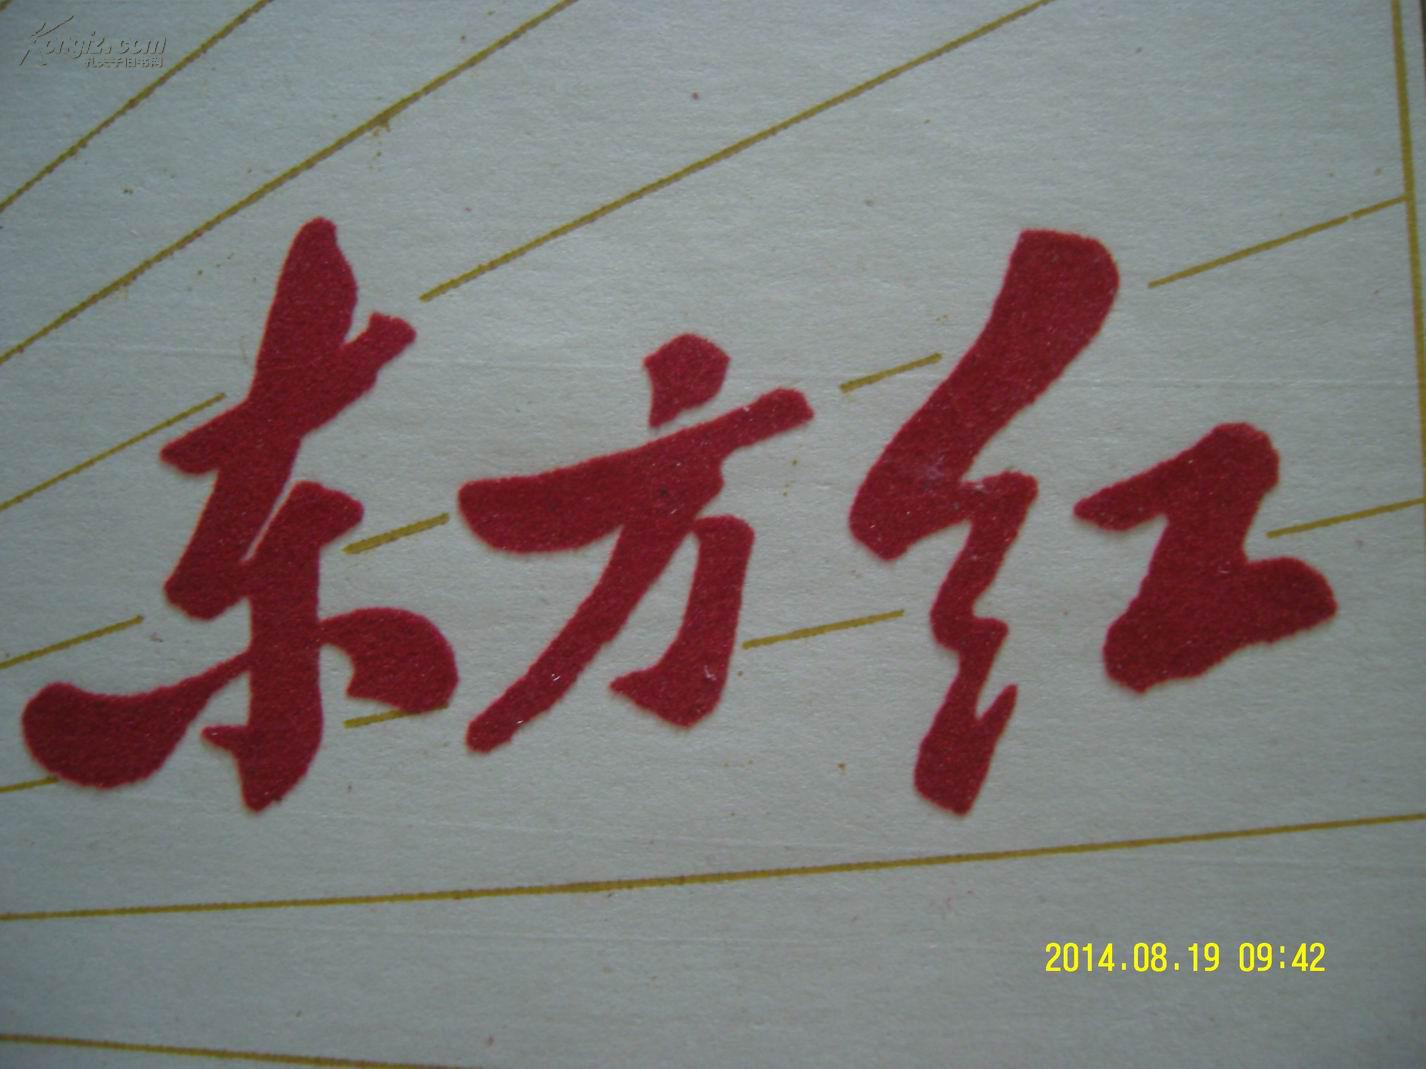 Kongfz.com
孔夫子旧书网
东方红
2014.08.19 09:42